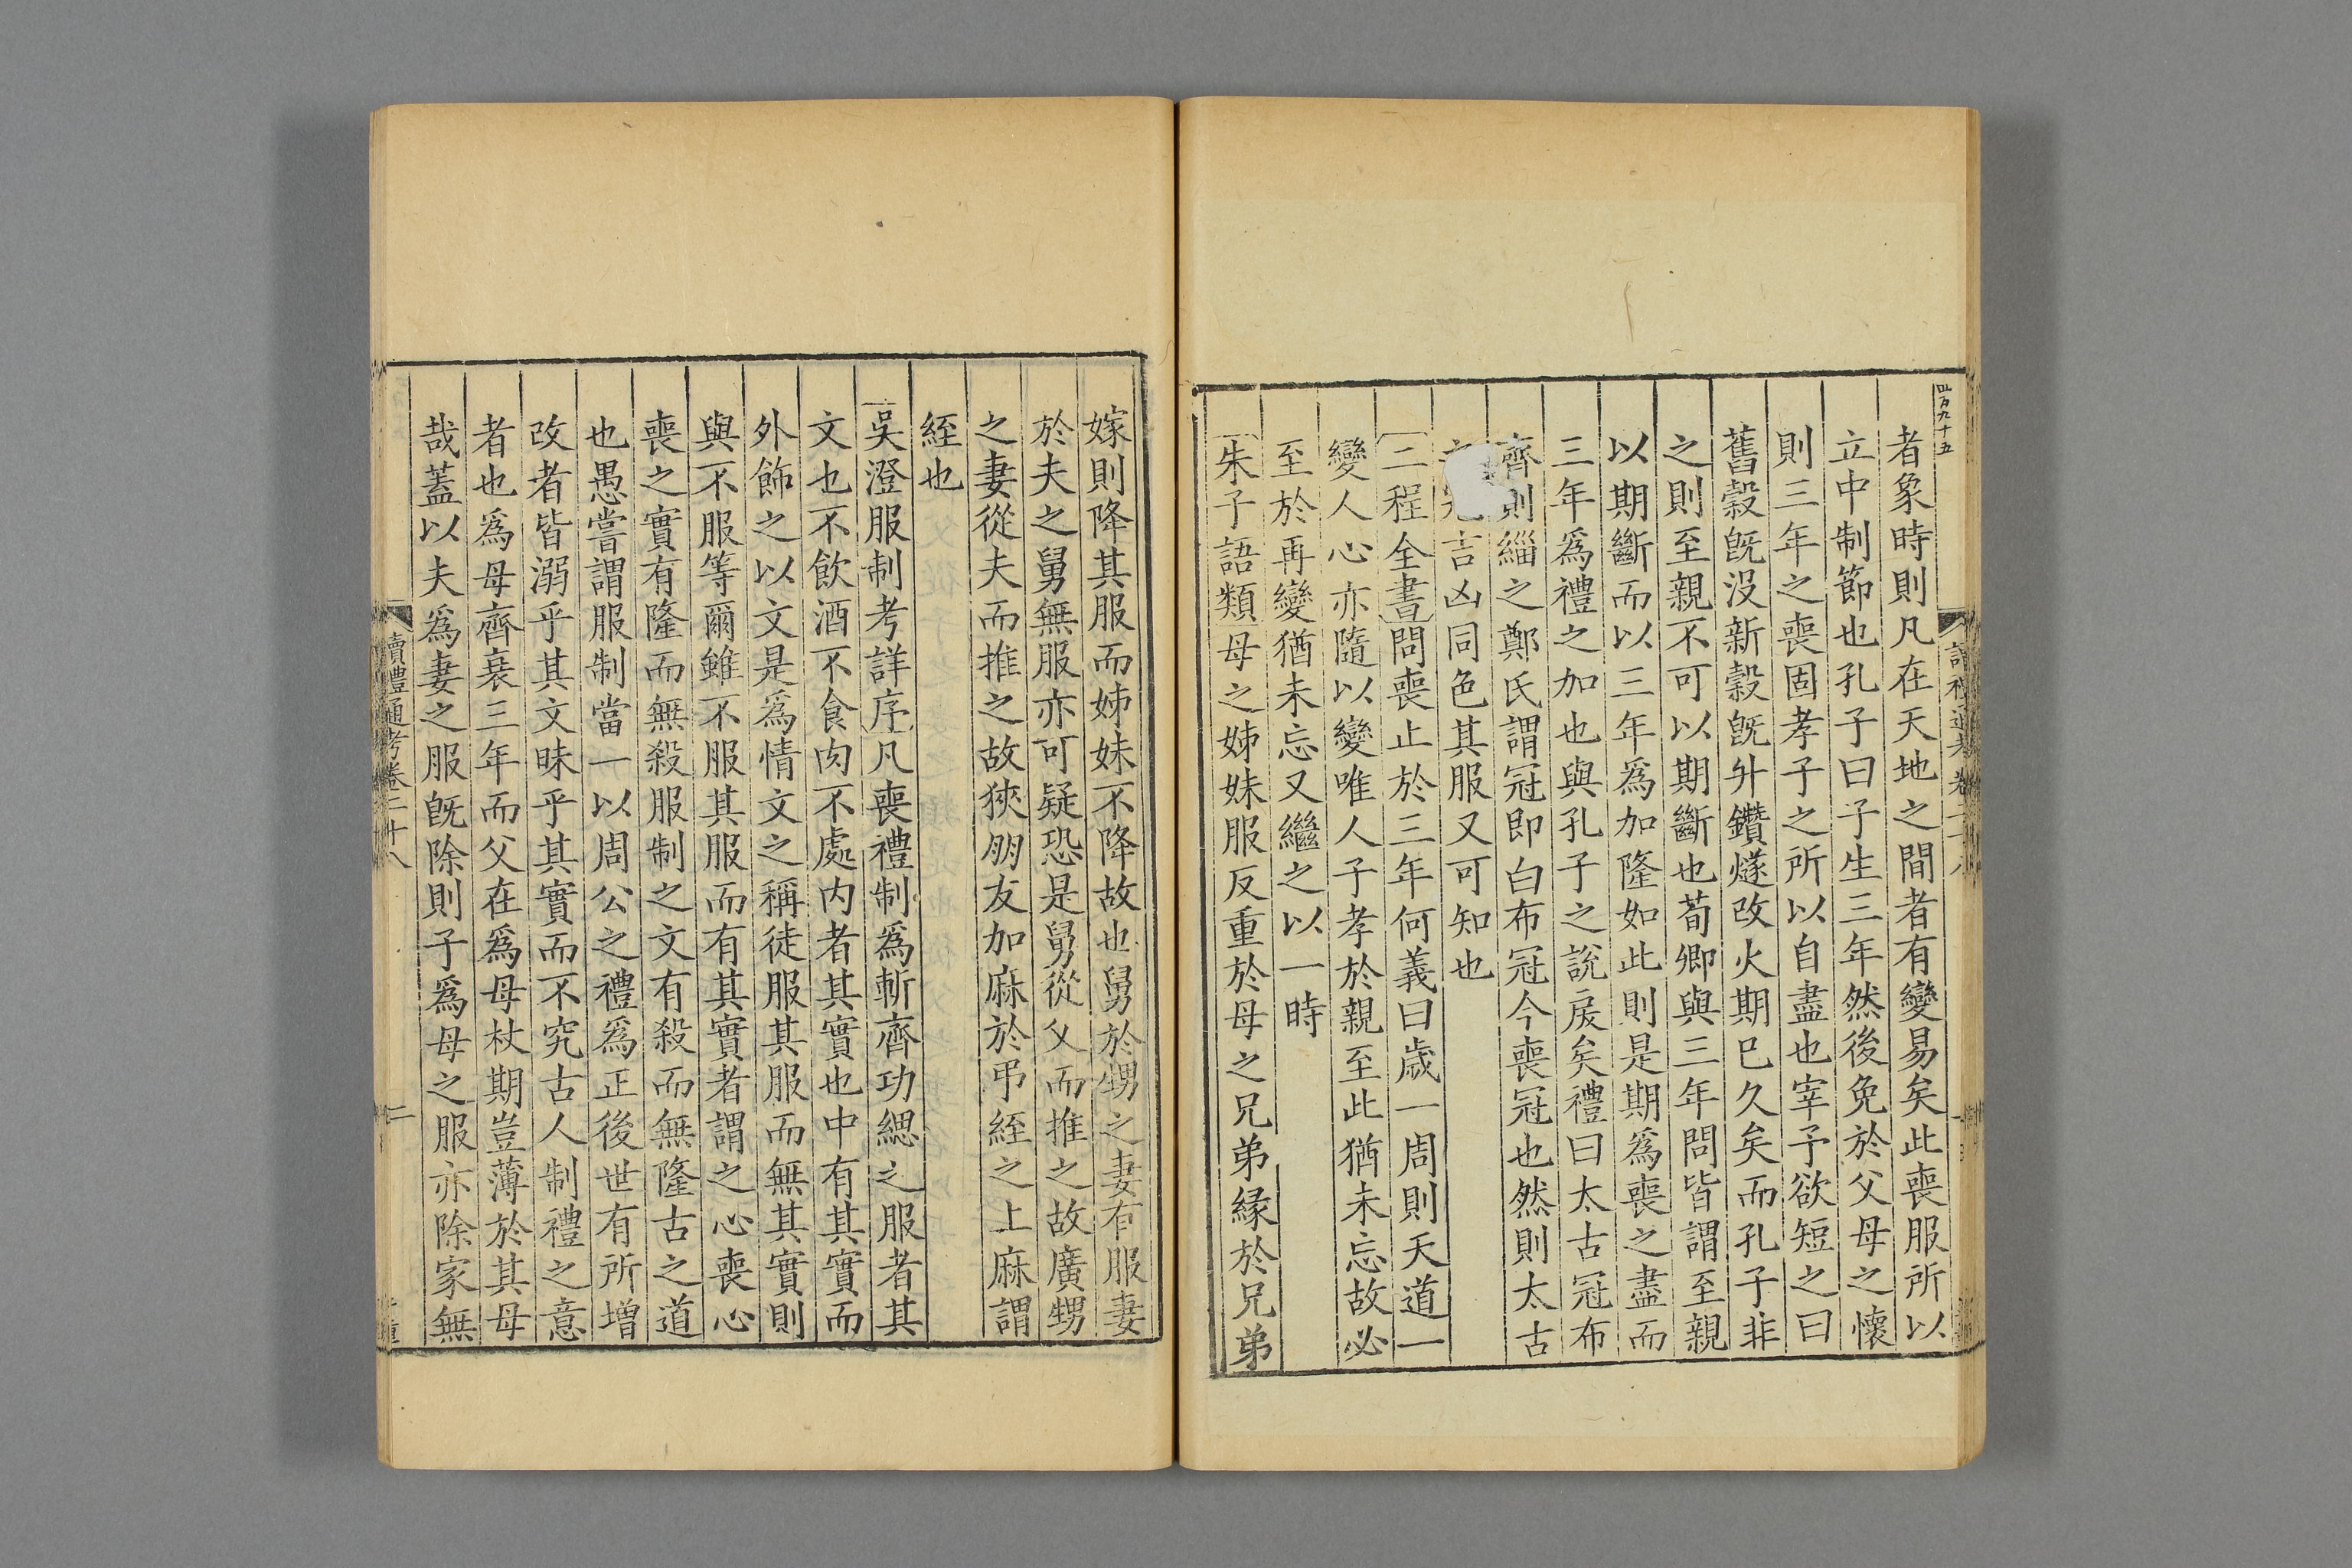 四百九十五
讀禮通考卷二十八
者象時則凡在天地之間者有變易矣此喪服所以
立中制節也孔子曰子生三年然後免於父母之懷
則三年之喪固孝子之所以自盡也宰予欲短之曰
舊穀旣沒新穀旣升鑽燧改火期巳久矣而孔子非
之則至親不可以期斷也荀卿與三年問皆謂至親
以期斷而以三年爲加隆如此則是期爲喪之盡而
三年爲禮之加也與孔子之說戾矣禮曰太古冠布
齊則緇之鄭氏謂冠即白布冠今喪冠也然則太古
吉凶同色其服又可知也
二程全書問喪止於三年何義曰歲一周則天道一
變人心亦隨以變唯人子孝於親至此猶未忘故必
至於再變猶未忘又繼之以一時
朱子語類母之姊妹服反重於母之兄弟緣於兄弟
嫁則降其服而姊妹不降故也舅於甥之妻有服妻
於夫之舅無服亦可疑恐是舅從父而推之故廣甥
之妻從夫而推之故狹朋友加麻於弔絰之上麻謂
絰也
吳澄服制考詳序凡喪禮制爲斬齊功緦之服者其
文也不飲酒不食肉不處内者其實也中有其實而
外飾之以文是爲情文之稱徒服其服而無其實則
與不服等爾雖不服其服而有其實者謂之心喪心
喪之實有隆而無殺服制之文有殺而無隆古之道
也愚嘗謂服制當一以周公之禮爲正後世有所增
改者皆溺乎其文昧乎其實而不究古人制禮之意
者也爲母齊衰三年而父在爲母杖期豈薄於其母
哉蓋以夫爲妻之服旣除則子爲母之服亦除家無
讀禮通考卷二十八
二